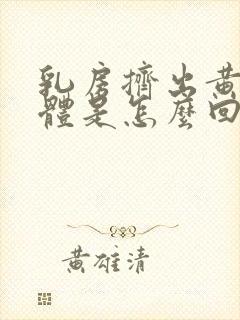 乳房擠出黃
體是怎麼回
黃雄清